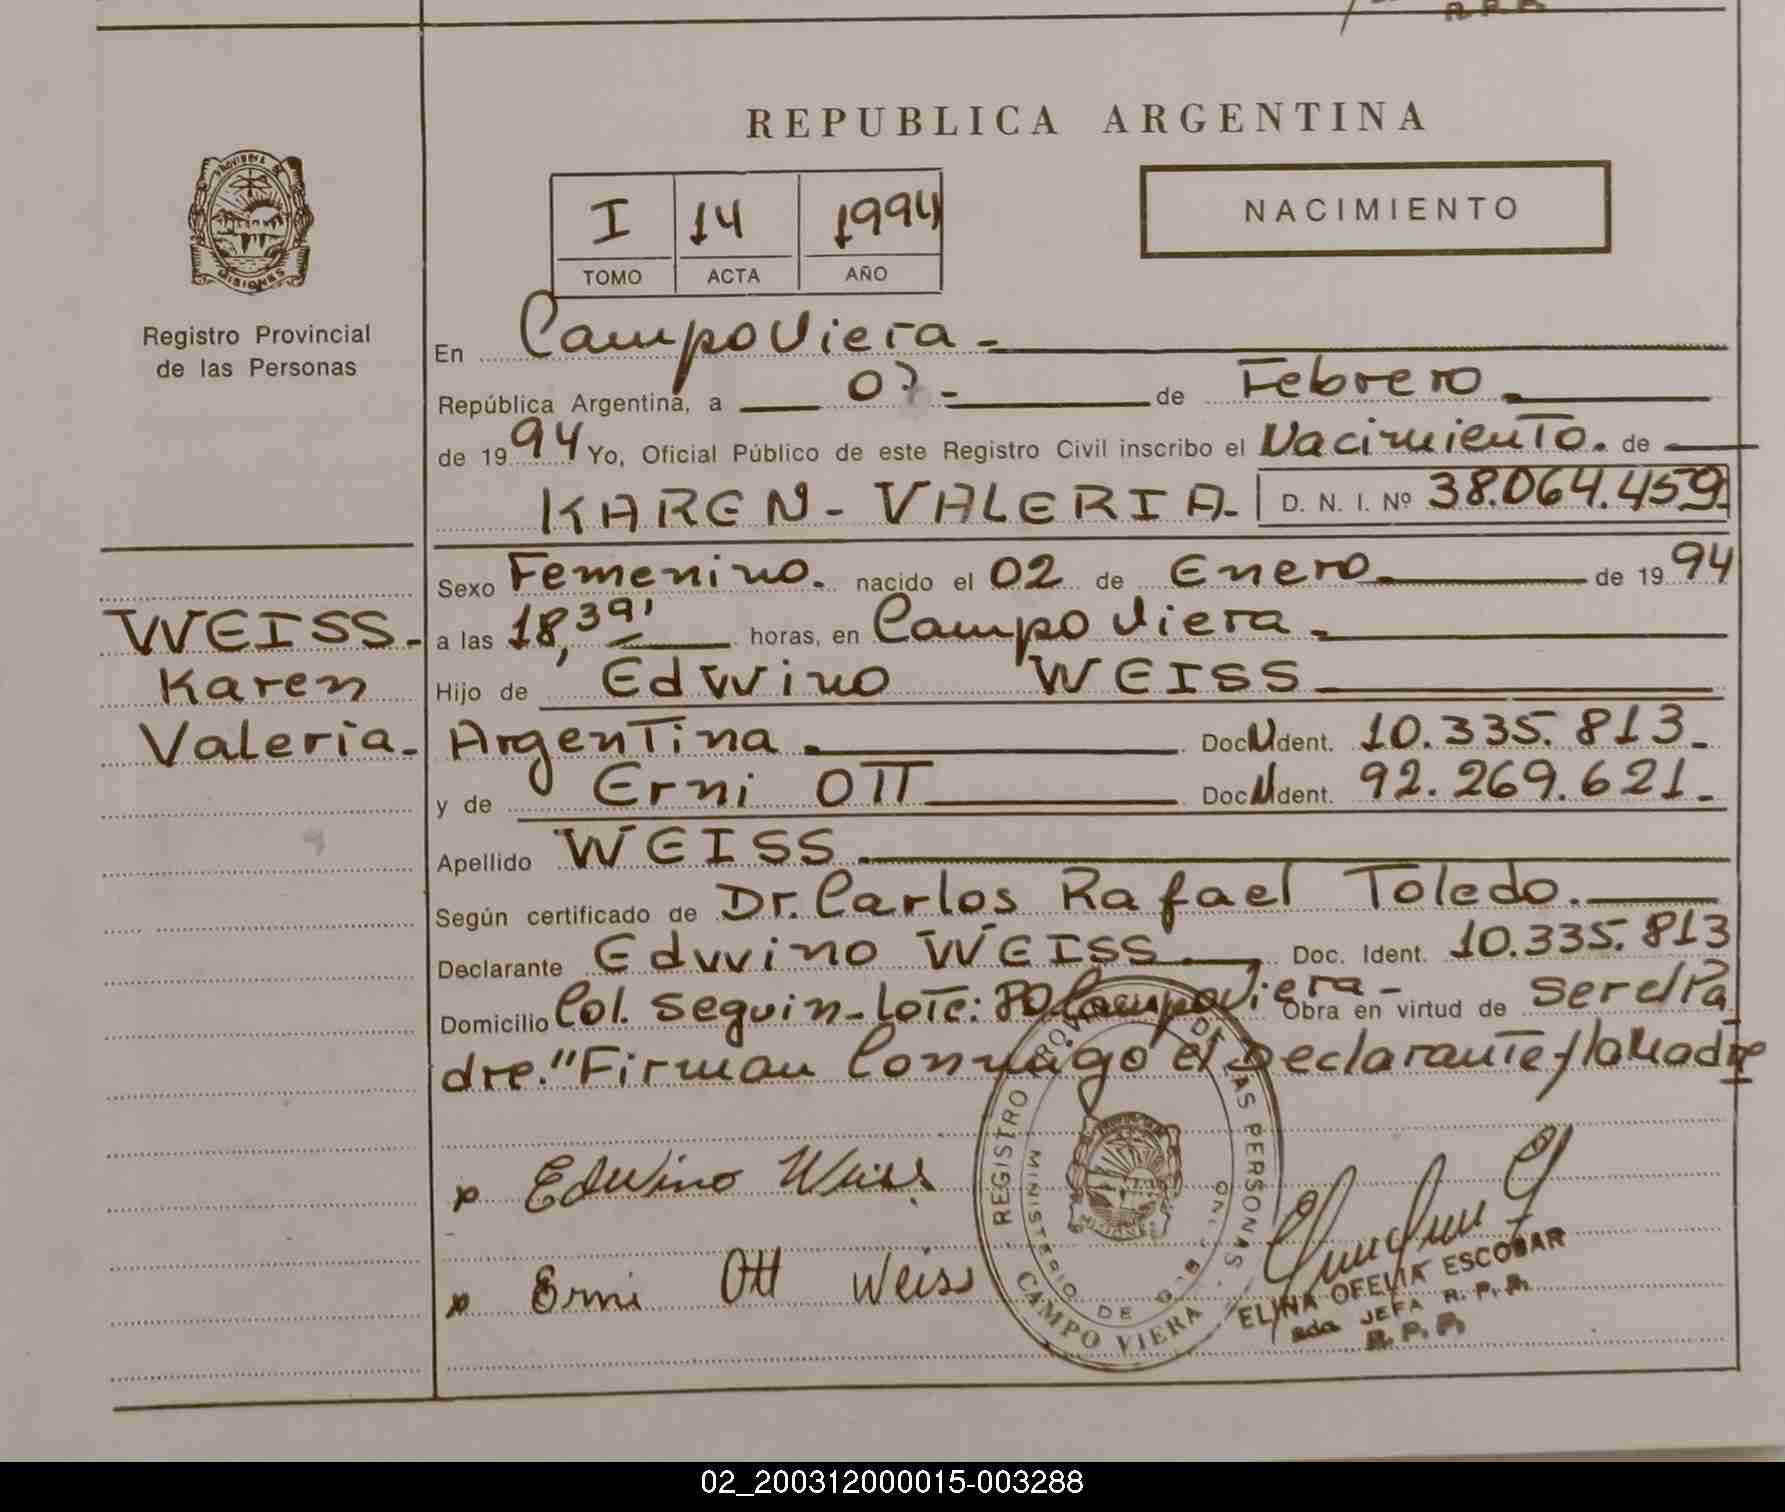 REPUBLICA ARGENTINA
NACIMIENTO
I 14 1994
TOMO ACTA AÑO
PROVINCIA DE
MISIONES
Registro Provincial
de las Personas
En Campo Viera -
República Argentina, a 07 - de Febrero
de 1994 Yo, Oficial Público de este Registro Civil inscribo el Nacimiento. de
KAREN - VALERIA - D. N. I. Nº 38.064.459
Sexo Femenino. nacido el 02 de Enero de 1994
WEISS -
Karen
Valeria -
a las 18,39' horas, en Campo Viera -
Hijo de Edwino WEISS
Argentina Doc. Ident. 10.335.813 -
y de Erni OTT Doc. Ident. 92.269.621 -
Apellido WEISS
Según certificado de Dr. Carlos Rafael Toledo.
Declarante Edwino WEISS Doc. Ident. 10.335.813
Domicilio Col. Seguin - Lote: 80 Campo Viera - Obra en virtud de ser el Pa
dre. "Firman Conmigo el Declarante y la Madre
Edwino Weiss
Erni Ott Weiss
REGISTRO PROVINCIAL DE LAS PERSONAS
MINISTERIO DE GOB
CAMPO VIERA
ELINA OFELIA ESCOBAR
2da JEFA R. P. P.
R. P. P.
02_200312000015-003288